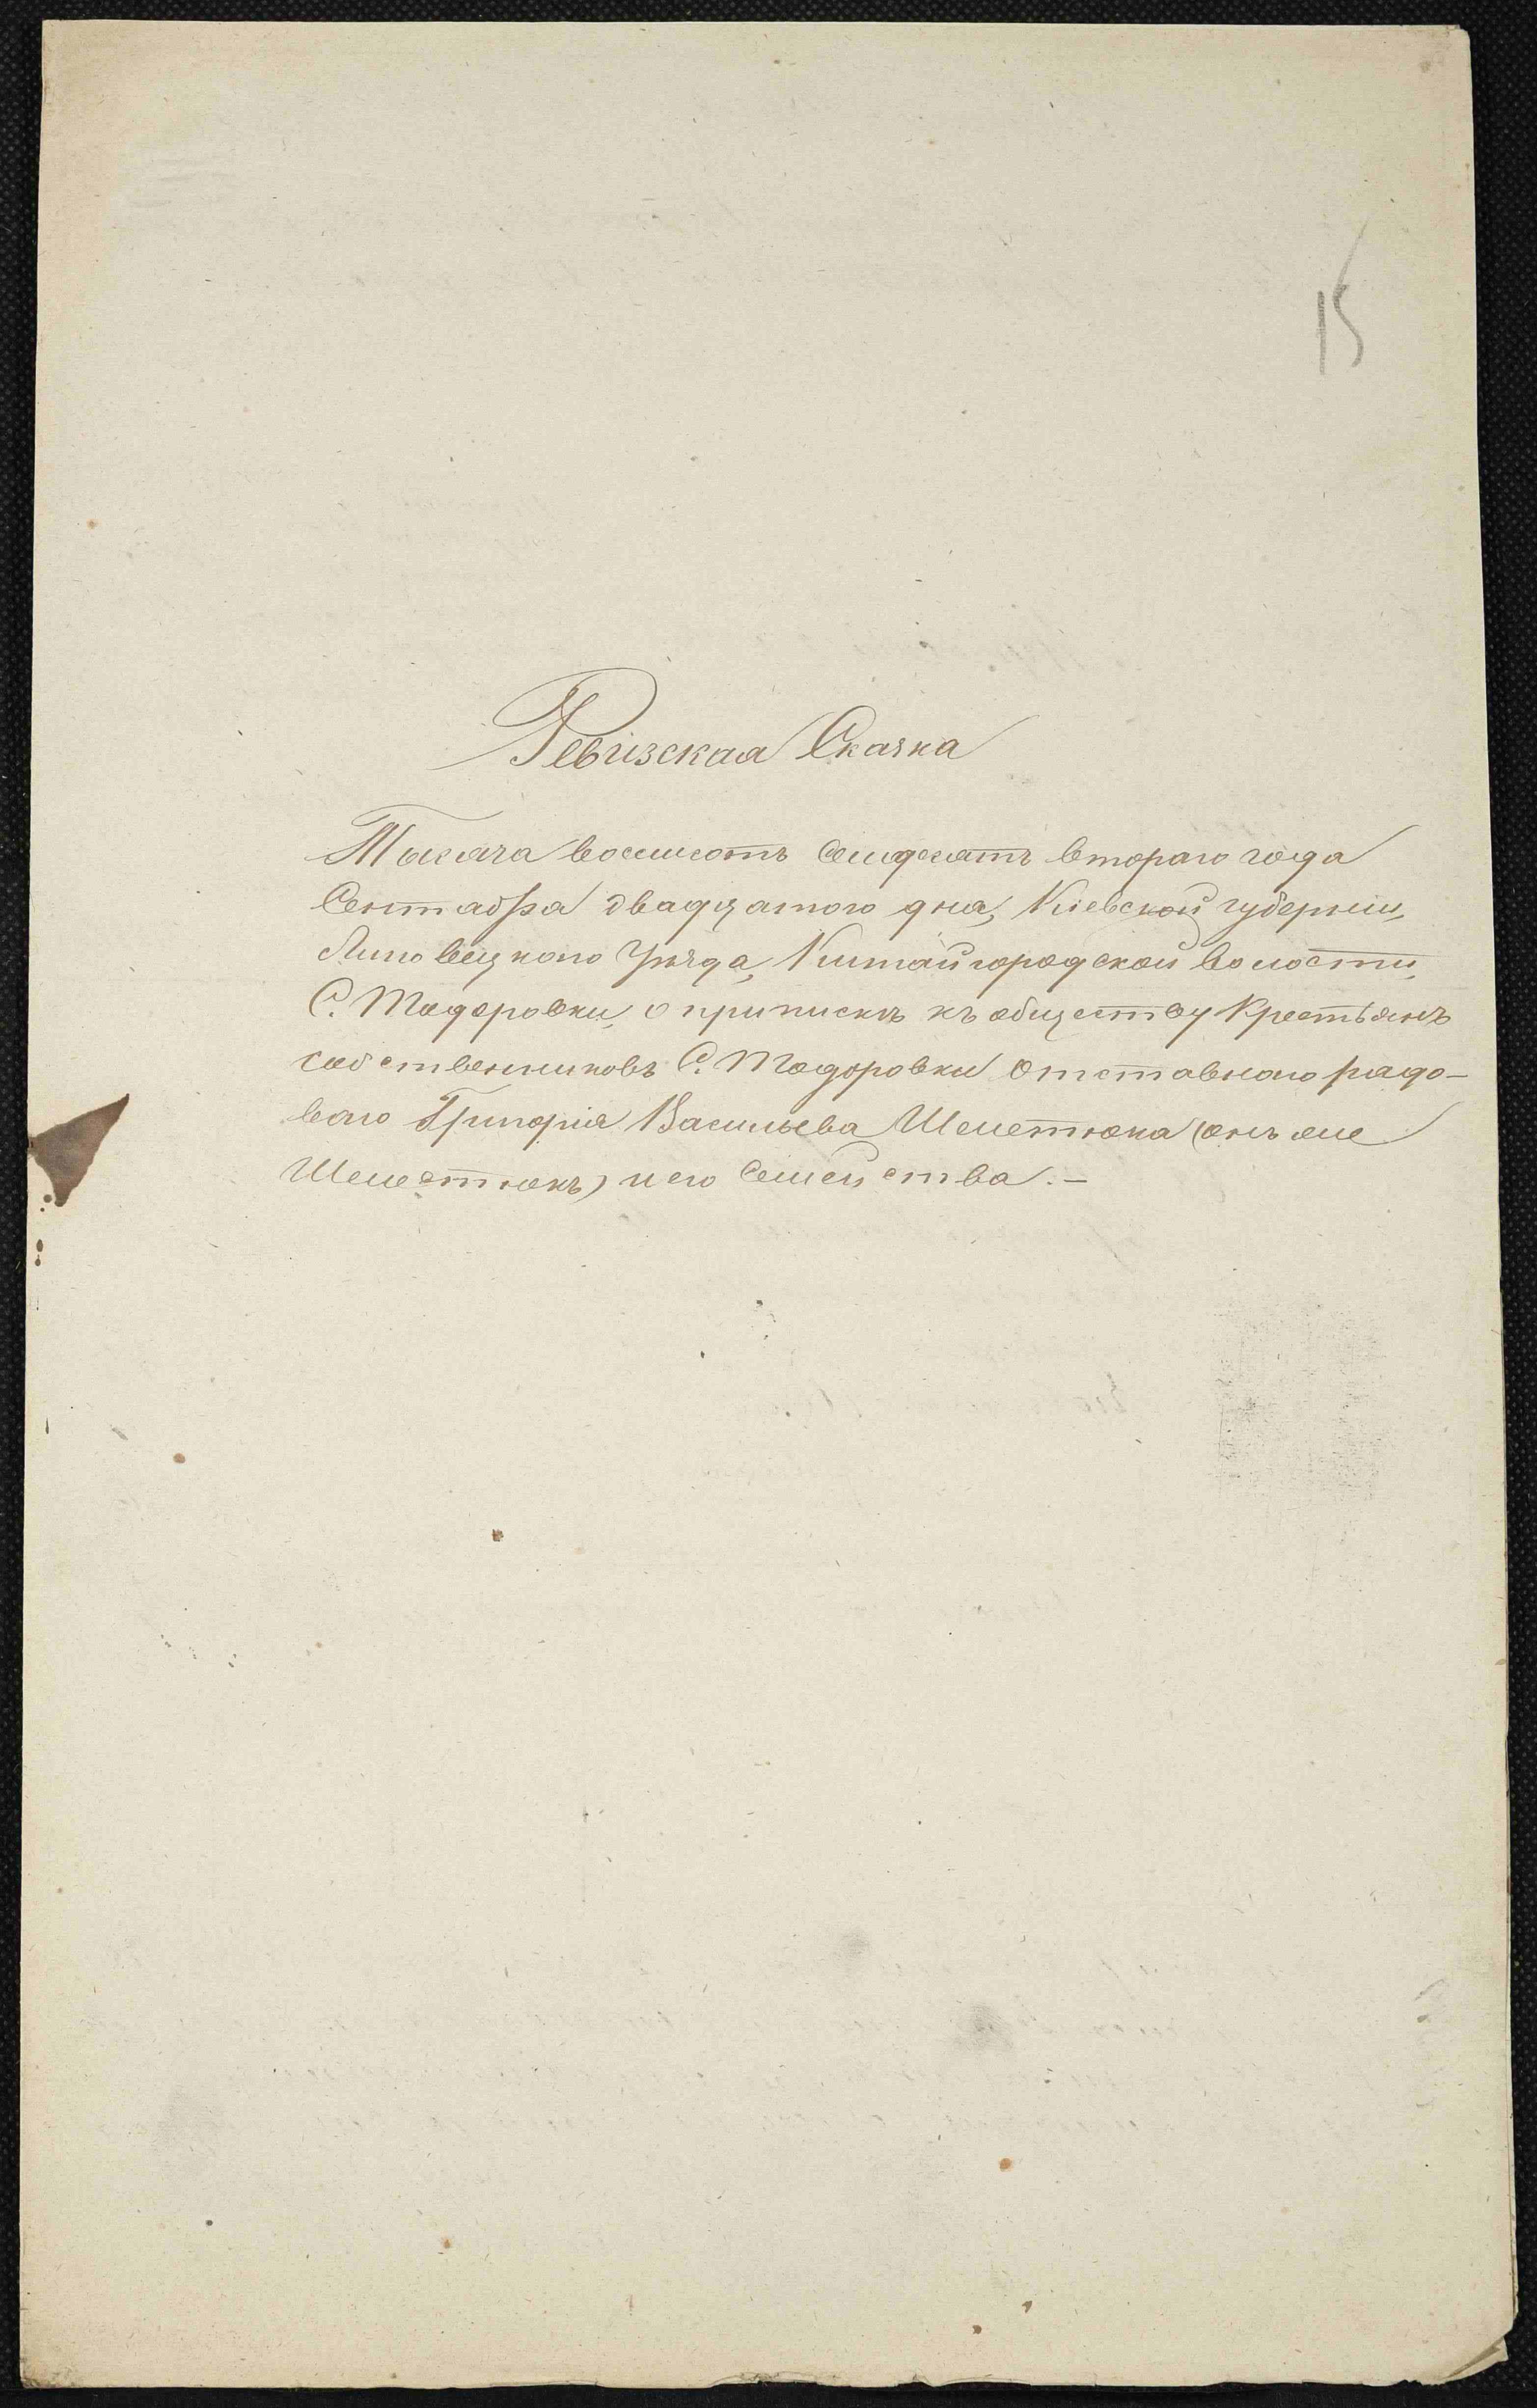 15
Ревизская Сказка
Тысяча восемсотъ семдесятъ втораго года
Сентабря двадцатого дня, Кіевской губерніи,
Липовецкого Уѣзда, Китайгородской волости,
С. Тодоровки, о припискѣ къ обществу Крестьянъ
собственниковъ С. Тодоровки отставного рядо-
вого Григорія Васильева Шелетюка (онъ же
Шелестюкъ) и его семейства. —